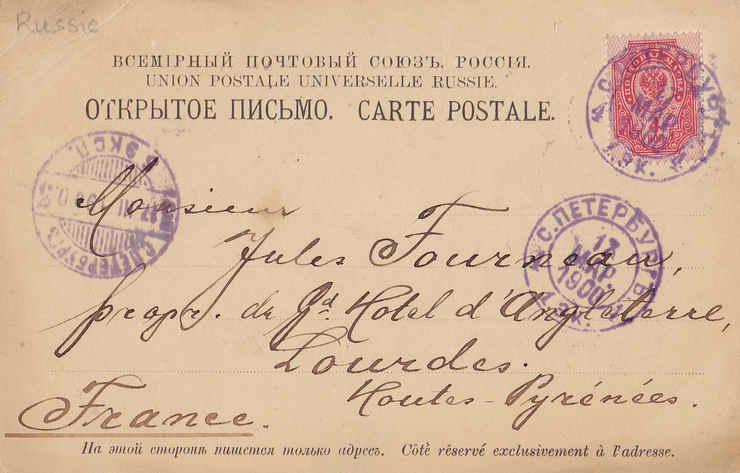 Russie
ВСЕМІРНЫЙ ПОЧТОВЫЙ СОЮЗЪ. РОССІЯ.
UNION POSTALE UNIVERSELLE RUSSIE.
ОТКРЫТОЕ ПИСЬМО. CARTE POSTALE.
С.ПЕТЕРБУРГЪ
МАР
1 ЭК.
4
С.ПЕТЕРБУРГЪ
ЭКСП.
С.ПЕТЕРБУРГЪ
13
МАР
1900
1 ЭК.
Monsieur
Jules Fourneau,
propr. de Gd. Hotel d'Angleterre,
Lourdes.
Hautes-Pyrénées.
France.
На этой сторонѣ пишется только адресъ. Côté réservé exclusivement à l'adresse.